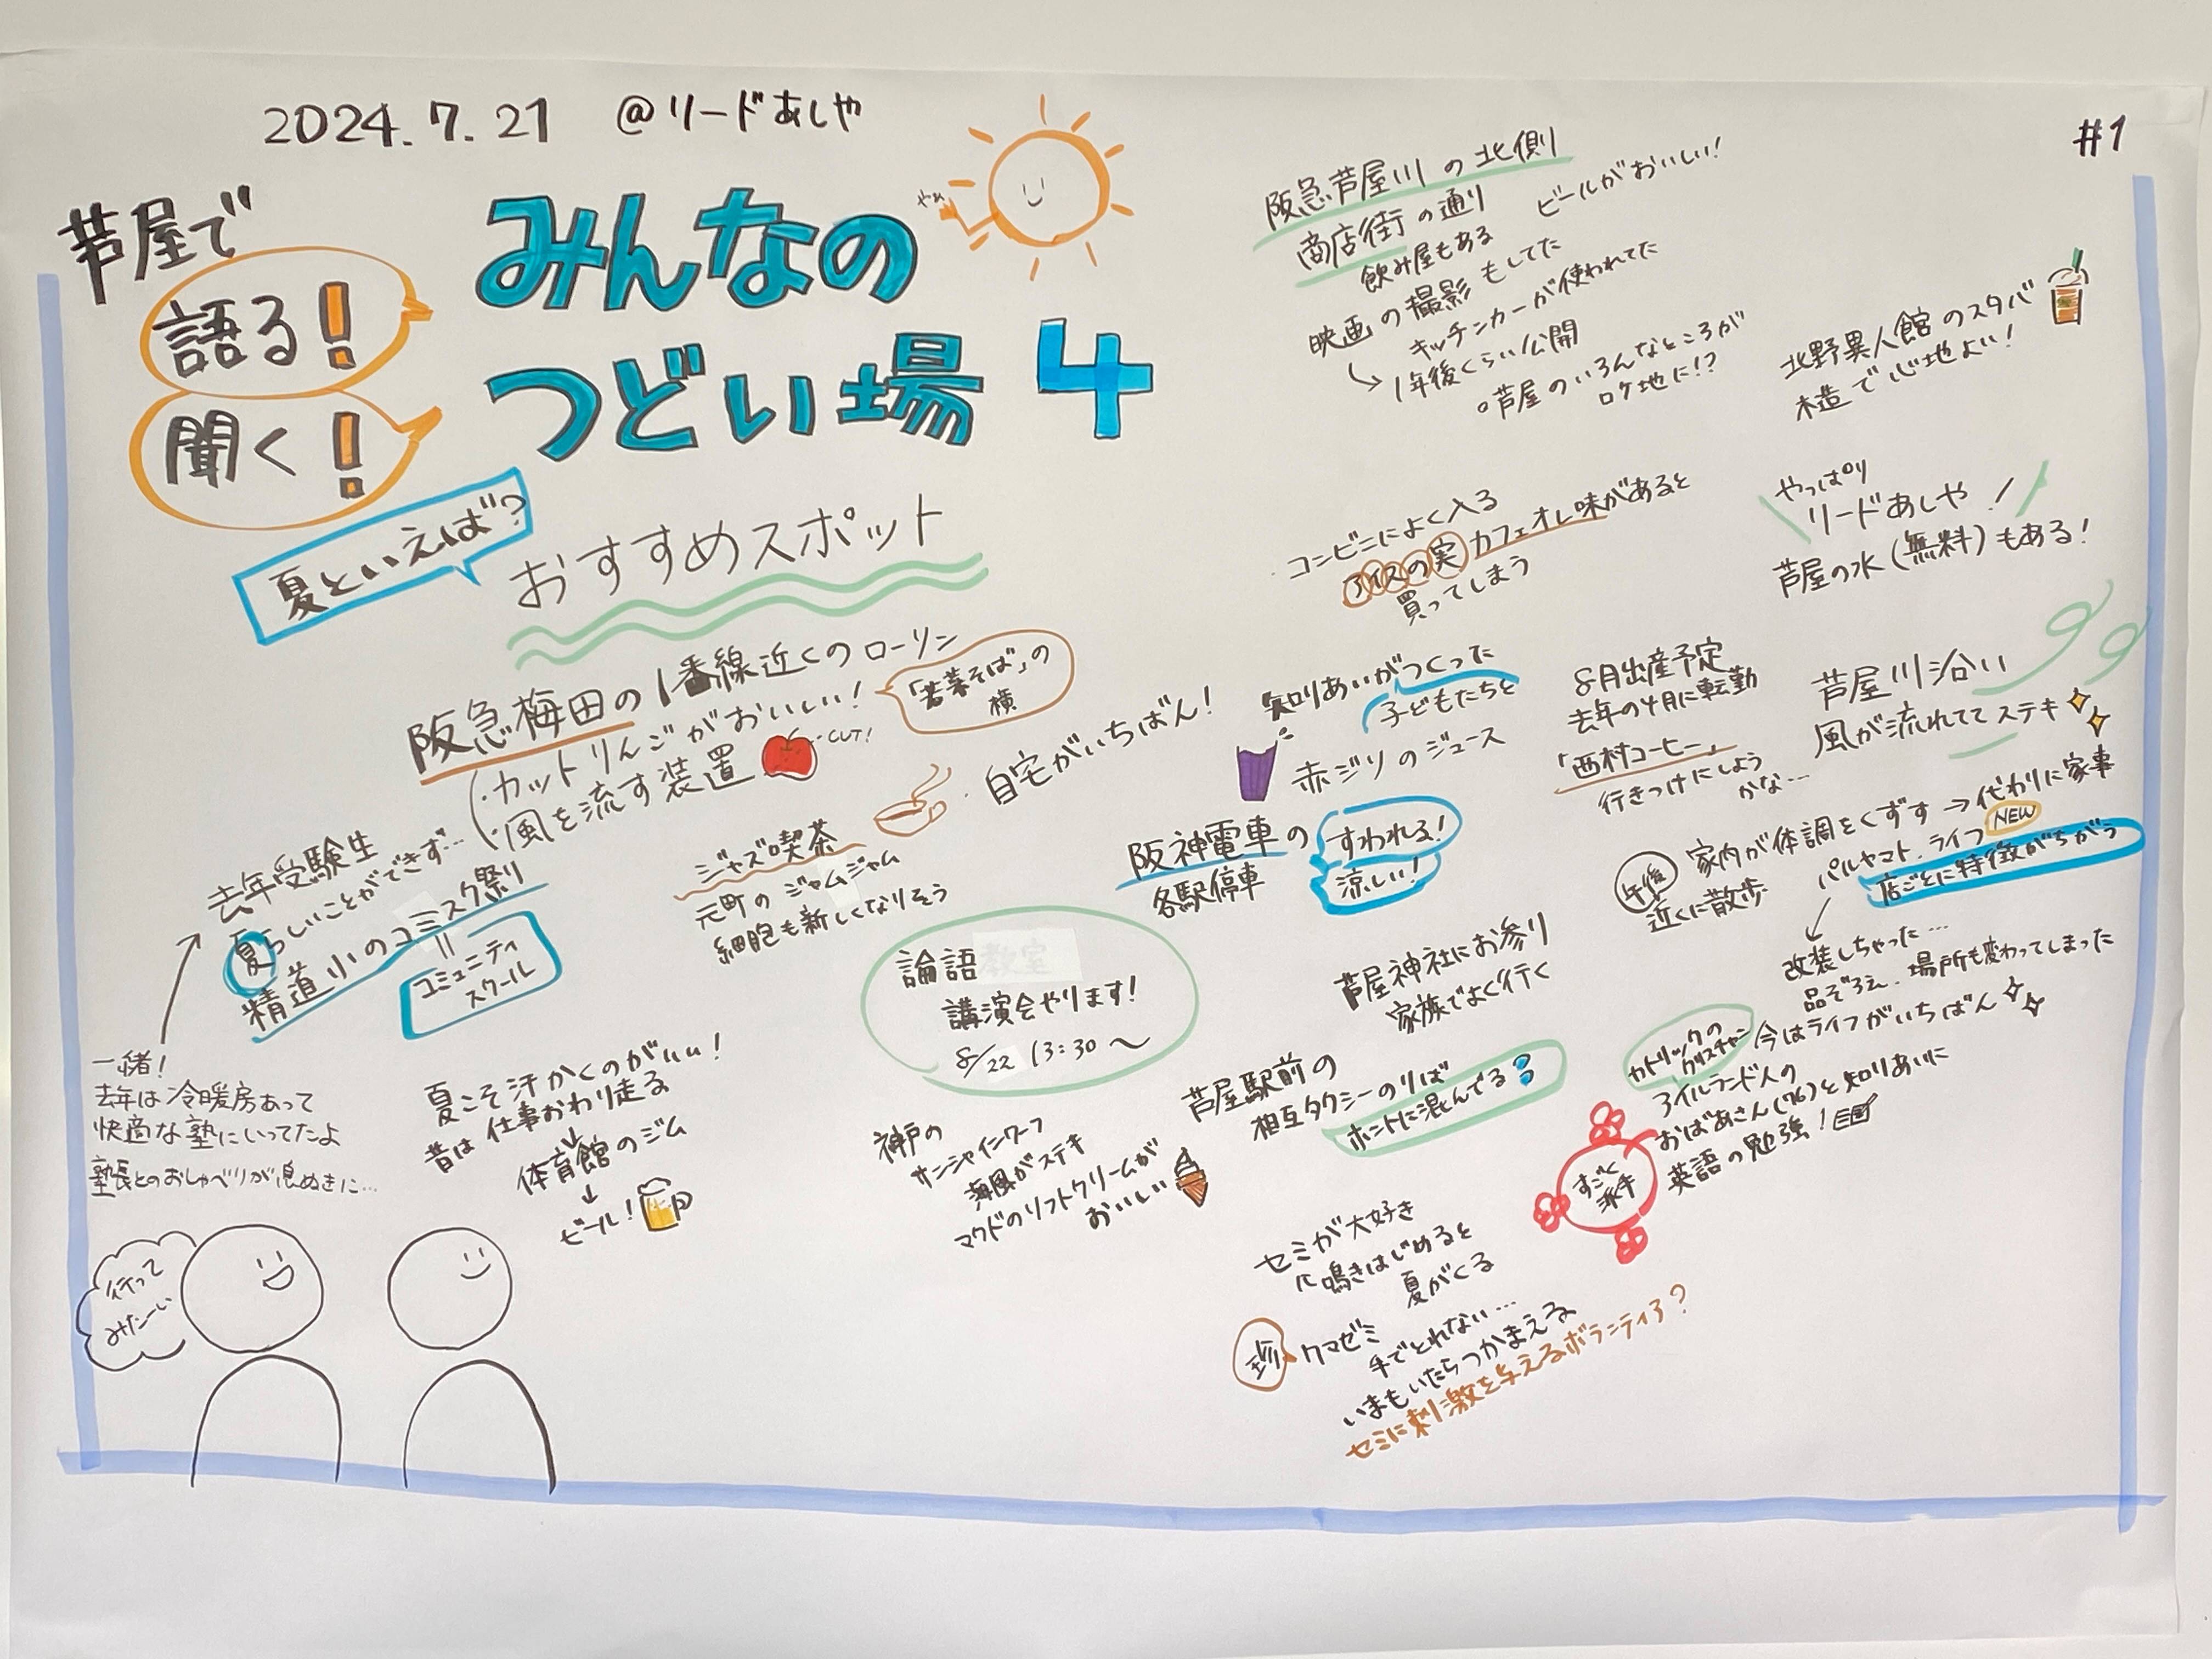 2024.7.21 @リードあしや
#1
芦屋で
語る!
聞く!
みんなの
つどい場 4
やぁ
夏といえば?
おすすめスポット
阪急梅田の1番線近くのローソン
・カットりんごがおいしい!
・風を流す装置
CUT!
「若菜そば」の
横
・自宅がいちばん!
去年受験生
夏らしいことができず…
精道小のコミスク祭り
=
コミュニティ
スクール
一緒!
去年は冷暖房あって
快適な塾にいってたよ
塾長とのおしゃべりが息ぬきに…
行って
みたーい
夏こそ汗かくのがいい!
昔は仕事おわり走る
↓
体育館のジム
↓
ビール!
ジャズ喫茶
元町のジャムジャム
細胞も新しくなりそう
論語 教室
講演会やります!
8/22 13:30〜
神戸の
サンシャインワーフ
海風がステキ
マクドのソフトクリームが
おいしい
阪急芦屋川の北側
商店街の通り
飲み屋もある
ビールがおいしい!
映画の撮影もしてた
キッチンカーが使われてた
→1年後くらい公開
○芦屋のいろんなところが
ロケ地に!?
北野異人館のスタバ
木造で心地よい!
・コンビニによく入る
アイスの実カフェオレ味があると
買ってしまう
やっぱり
リードあしや!
芦屋の水(無料)もある!
知りあいがつくった
子どもたちと
赤ジソのジュース
8月出産予定
去年の4月に転勤
「西村コーヒー」
行きつけにしよう
かな…
芦屋川沿い
風が流れてて ステキ
阪神電車の
各駅停車
すわれる!
涼しい!
午後
家内が体調をくずす→代わりに家事
近くに散歩
パルヤマト、ライフ
NEW
店ごとに特徴がちがう
改装しちゃった…
品ぞろえ、場所も変わってしまった
今はライフがいちばん
芦屋神社にお参り
家族でよく行く
芦屋駅前の
相互タクシーのりば
ホントに混んでる
カトリックの
クリスチャン
アイルランド人の
おばあさん(76)と知りあいに
英語の勉強!
すごく
派手
セミが大好き
鳴きはじめると
夏がくる
珍
クマゼミ
手でとれない…
いまもいたらつかまえる
セミに刺激を与えるボランティア?